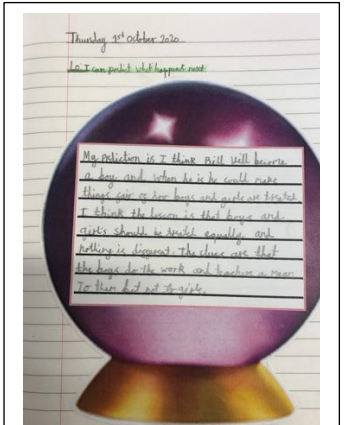 Thursday 1st October 2020
Lo: I can predict what happens next
My prediction is I think Bill will become
a boy and when he is he could make
things fair of how boys and girls are treated
I think the lesson is that boys and
girls should be treated equally and
nothing is different. The clues are that
the boys do the work and teachers a mean
To them but not to girls.